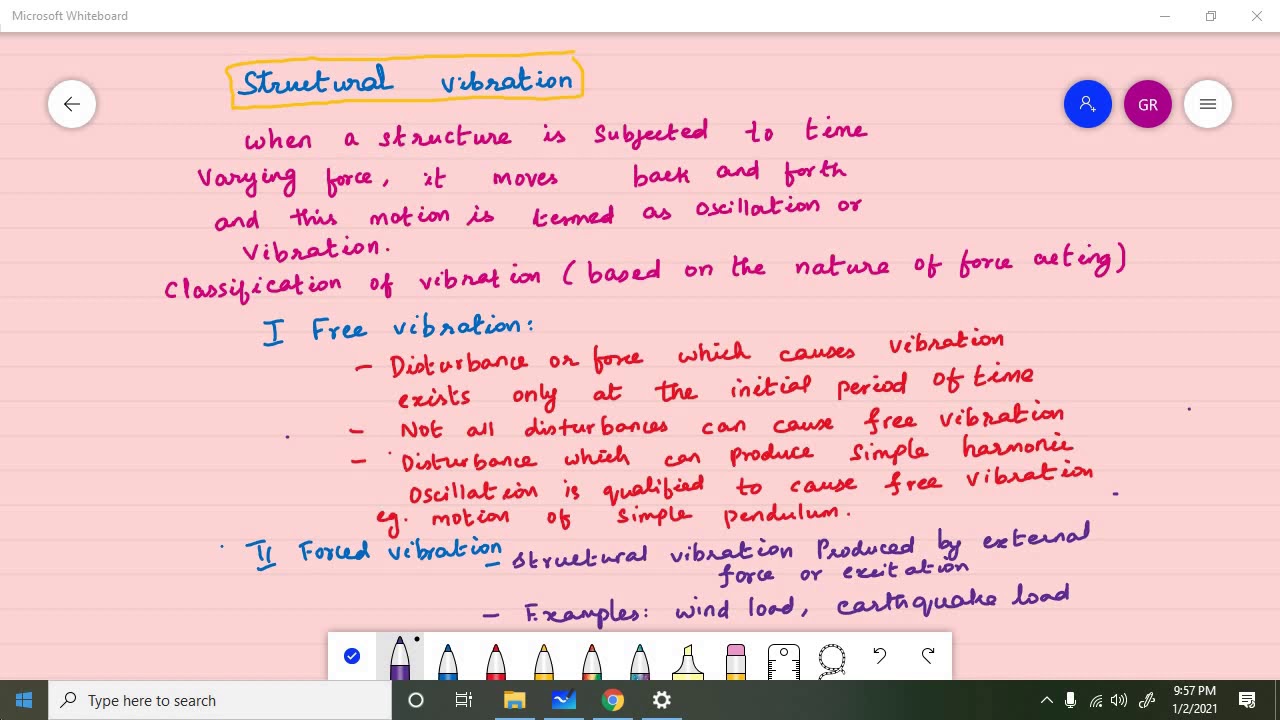 Microsoft Whiteboard
Structural vibration
GR
when a structure is subjected to time
varying force, it moves back and forth
and this motion is termed as oscillation or
vibration.
Classification of vibration (based on the nature of force acting)
I Free vibration:
- Disturbance or force which causes vibration
exists only at the initial period of time
- Not all disturbances can cause free vibration
- Disturbance which can produce simple harmonic
oscillation is qualified to cause free vibration
eg. motion of simple pendulum.
II Forced vibration - structural vibration Produced by external
force or excitation
- Examples: wind load, earthquake load
Type here to search
9:57 PM
1/2/2021